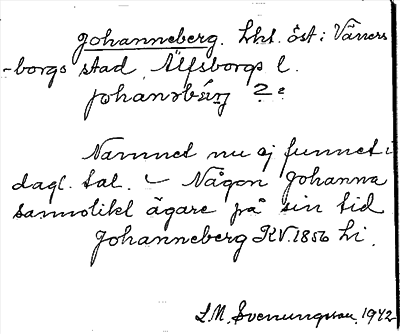 Johanneberg. Lht. öst i Väners
-borgs stad, Älfsborgs l.
johanəbærj 2 e
Namnet nu ej funnet i
dagl. tal. – Någon Johanna
sannolikt ägare på sin tid
Johanneberg KV. 1856 hi.
L.M. Svenungsson. 1942